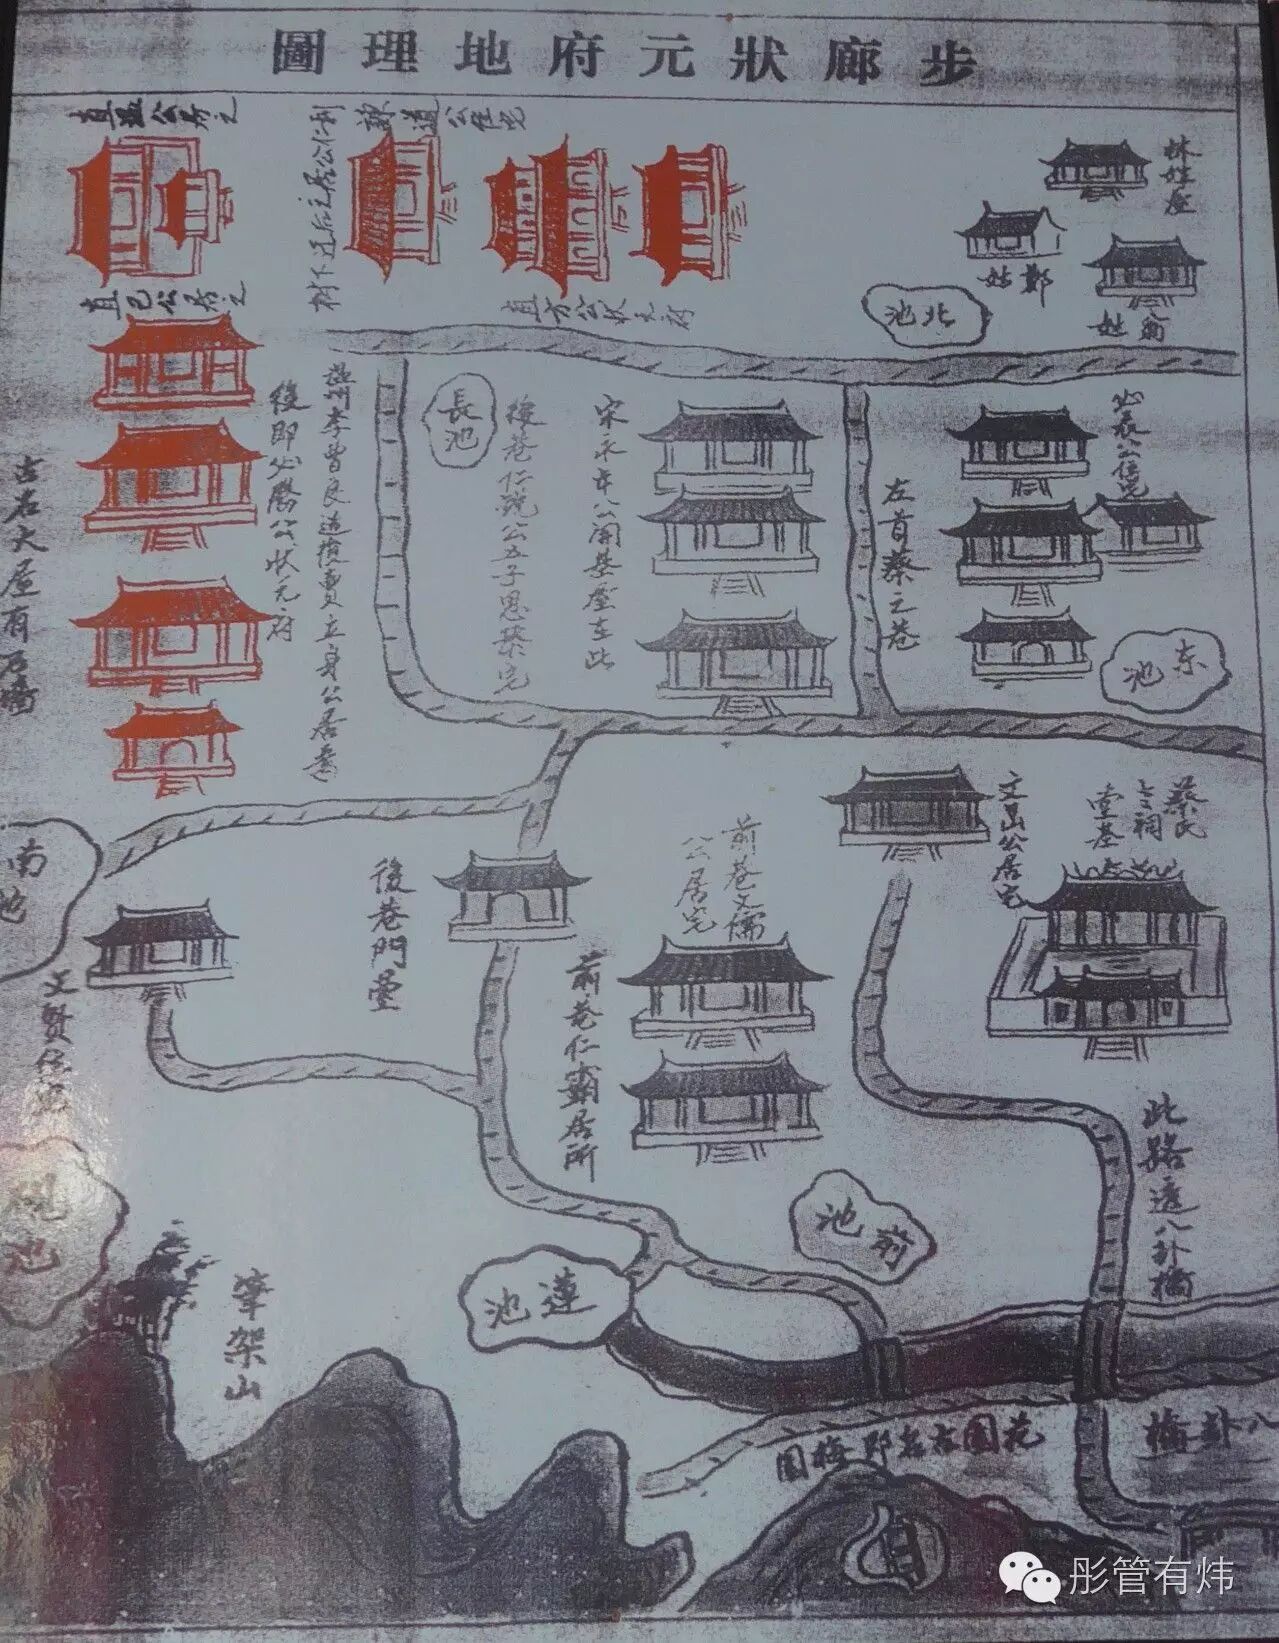 步廊狀元府地理圖
林姓屋
鄭姓
姓
北池
直方公狀元府
長池
後巷仁說公五子恩榮宅
宋永年公開基屋在此
左首蔡之巷
公住宅
东池
後即必勝公狀元府
古名大屋有石墻
南池
後巷門臺
前巷文儒公居宅
前巷仁霸居所
文昌公居宅
蔡氏宗祠堂基
此路透八卦橋
前池
蓮池
硯池
筆架山
花園古名郑梅園
八卦橋
彤管有炜